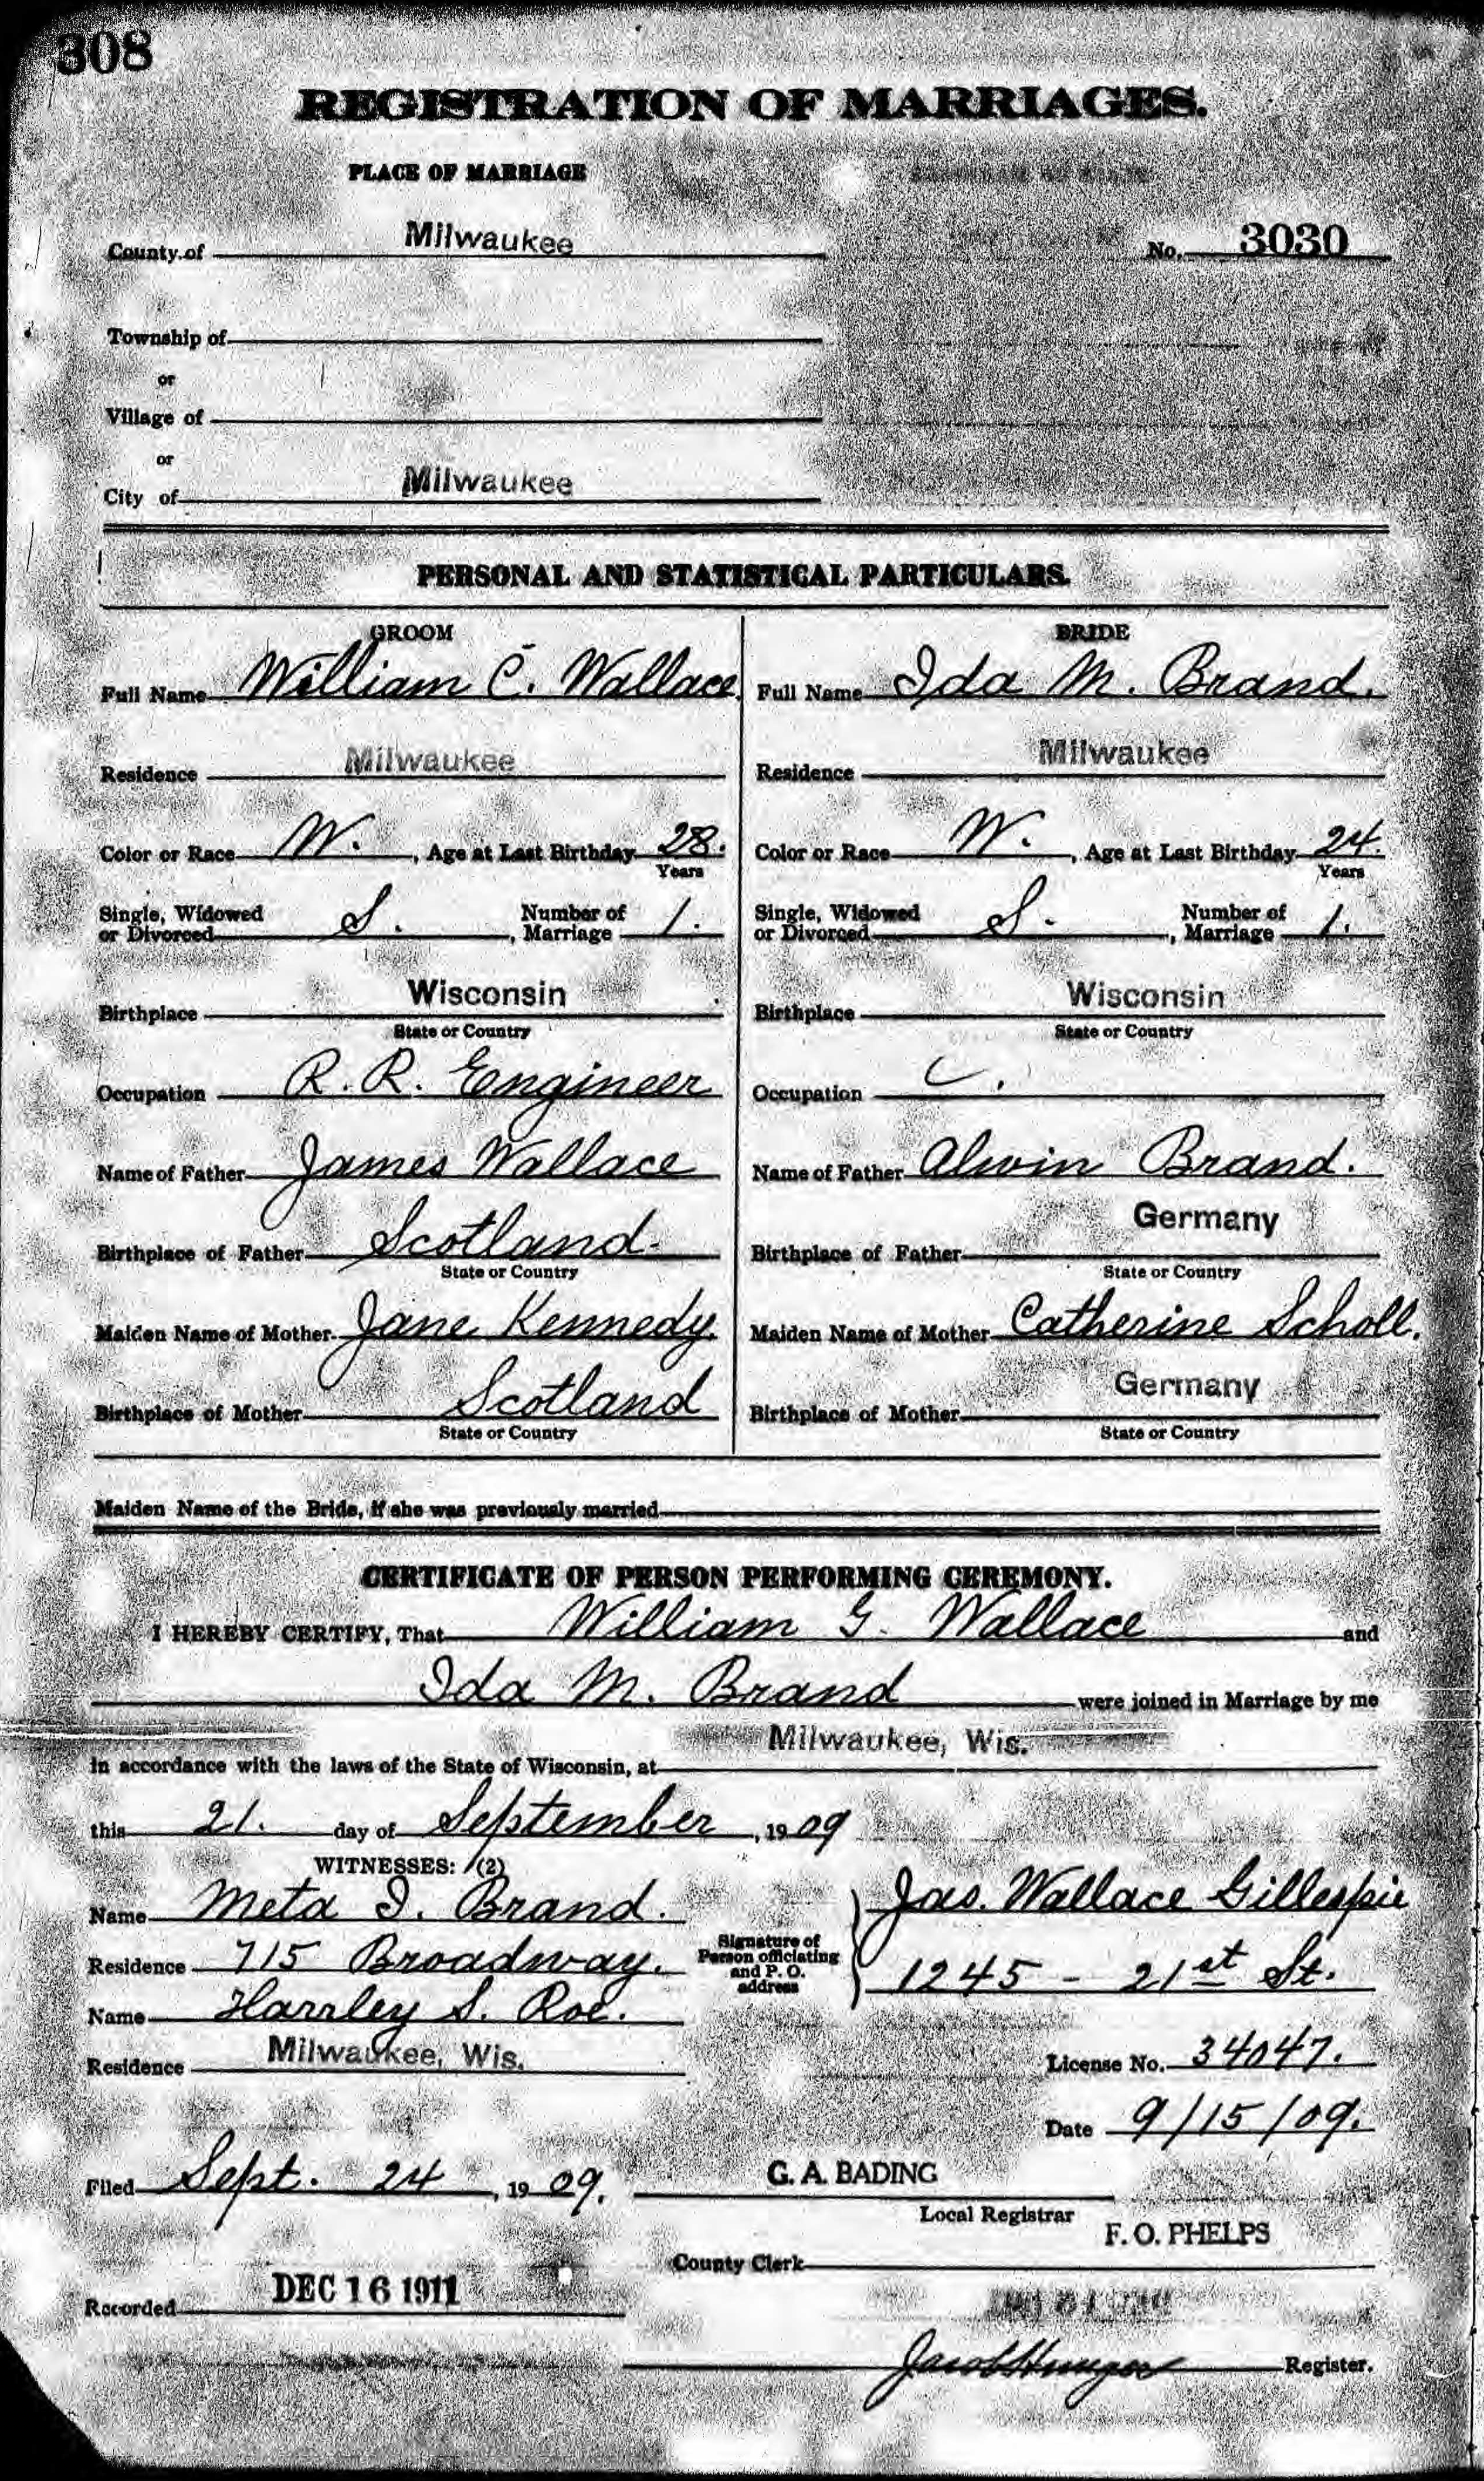 308
REGISTRATION OF MARRIAGES.
PLACE OF MARRIAGE
County of Milwaukee No. 3030
Township of
or
Village of
or
City of Milwaukee
PERSONAL AND STATISTICAL PARTICULARS.
GROOM
Full Name William C. Wallace
Residence Milwaukee
Color or Race W. , Age at Last Birthday 28.
Years
Single, Widowed or Divorced S. , Number of Marriage 1.
Birthplace Wisconsin
State or Country
Occupation R. R. Engineer
Name of Father James Wallace
Birthplace of Father Scotland
State or Country
Maiden Name of Mother Jane Kennedy
Birthplace of Mother Scotland
State or Country
BRIDE
Full Name Ida M. Brand.
Residence Milwaukee
Color or Race W. , Age at Last Birthday 24.
Years
Single, Widowed or Divorced S. , Number of Marriage 1.
Birthplace Wisconsin
State or Country
Occupation
Name of Father Alwin Brand.
Birthplace of Father Germany
State or Country
Maiden Name of Mother Catherine Scholl.
Birthplace of Mother Germany
State or Country
Maiden Name of the Bride, if she was previously married
CERTIFICATE OF PERSON PERFORMING CEREMONY.
I HEREBY CERTIFY, That William G. Wallace and
Ida M. Brand were joined in Marriage by me
in accordance with the laws of the State of Wisconsin, at Milwaukee, Wis.
this 21. day of September, 1909
WITNESSES: (2)
Name Meta I. Brand.
Residence 715 Broadway.
Name Harrley S. Roe.
Residence Milwaukee, Wis.
Signature of
Person officiating
and P. O.
address
Jas. Wallace Gillespie
1245 - 21st St.
License No. 34047.
Date 9/15/09.
Filed Sept. 24, 1909. G. A. BADING
Local Registrar
F. O. PHELPS
County Clerk
Recorded DEC 16 1911
Register.